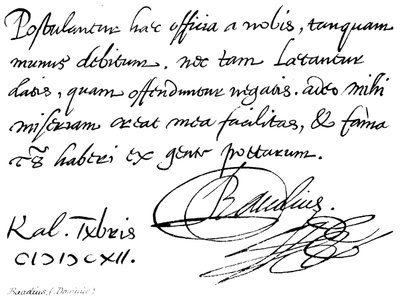 Postulantur haec officia a nobis, tanquam
munus debitum. nec tam laetantur
datis, quam offenduntur negatis. adeo mihi
miseriam creat mea facilitas, & fama
haberi ex gente poëtarum.
Baudius.
Kal. IXbris
CIƆIƆCXII.
Baudius, (Dominic)